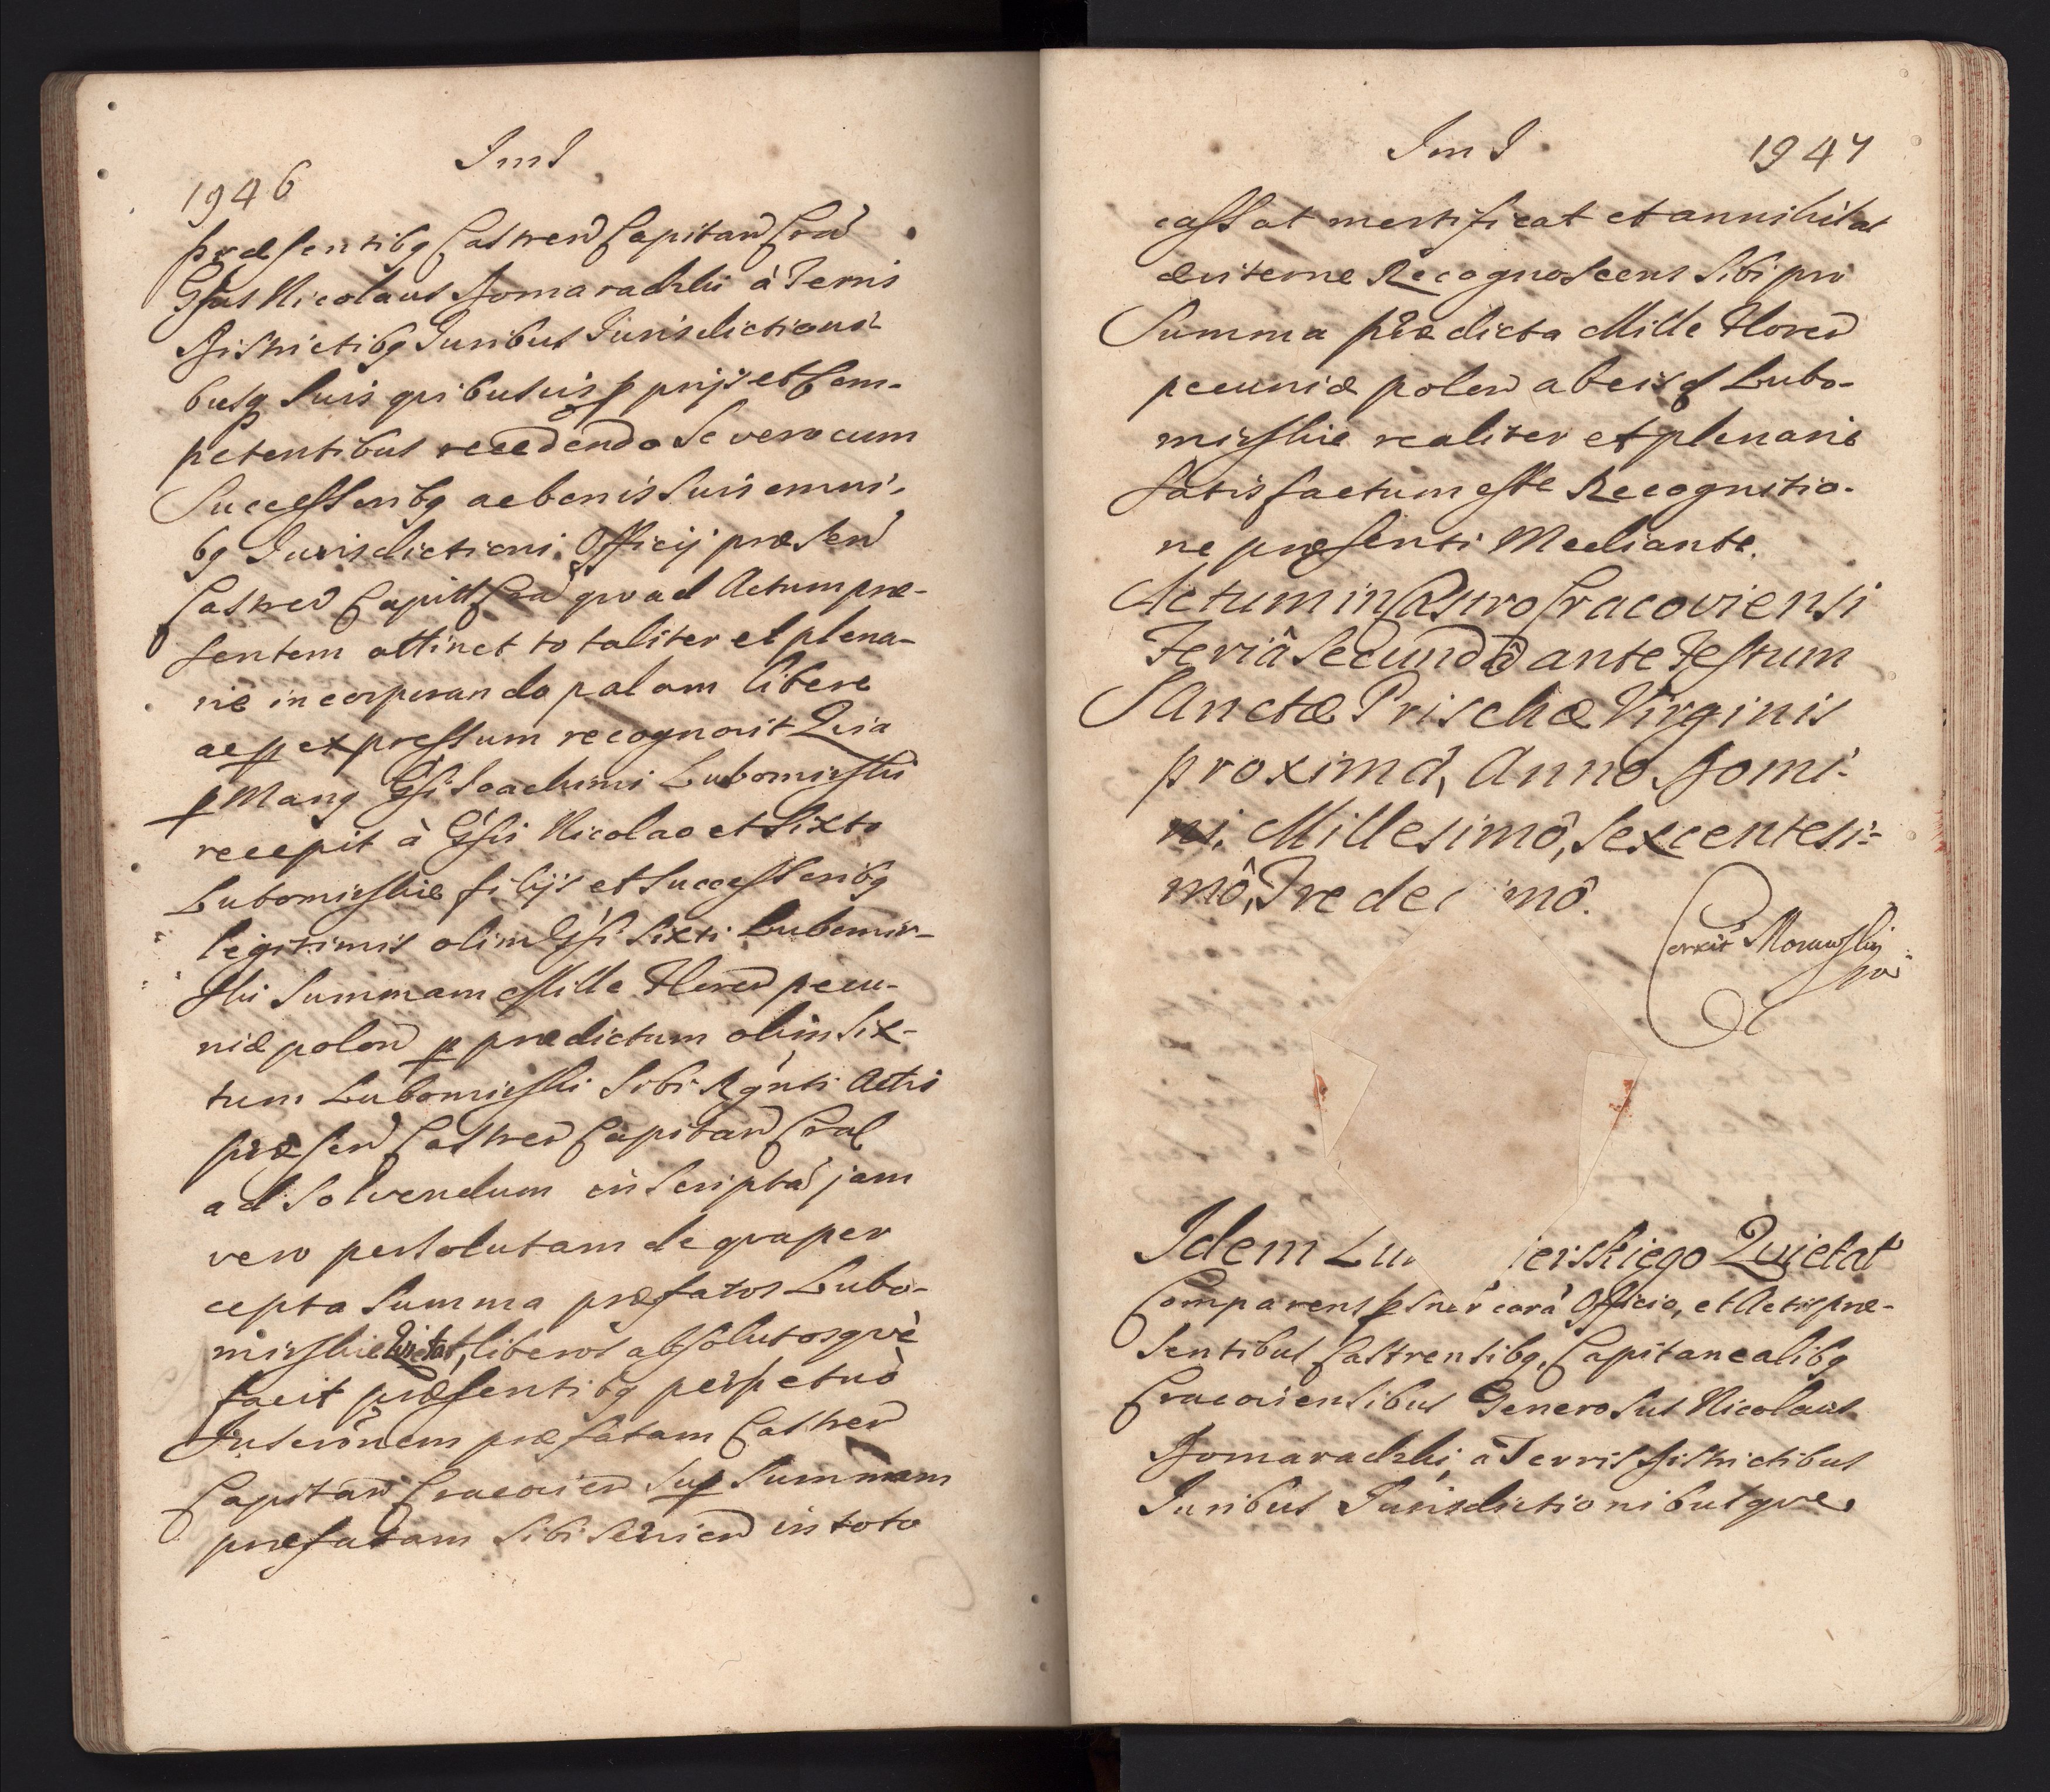 1946
ImI
præsentibq Castren Capitan Cra
Gsus Nicolaus Domaradzki à Terris
Districtibq Juribus Jurisdictioni-
busq suis quibusvis pprijs et Com-
petentibus recedendo Se vero cum
Successoribq ac bonis suis omni-
bq Jurisdictioni Officij præsen
Castren Capitt Cra quo ad Actum præ-
sentem attinet totaliter et plena-
rie incorporando palam libere
ac p expressum recognovit Quia
p Manq Gsi Joachimi Lubomirski
recepit à Gsis Nicolao et Sixto
Lubomirskie filijs et Successoribq
legitimis olim Gsi Sixti Lubomir-
ski Summam Mille Floren pecu-
niæ polon p prædictum olim Six-
tum Lubomirski Sibi Rgnti Actis
præsen Castren Capitan Crac
ad Solvendum inscripta jam
vero persolutam de qua per
cepta Summa præfatos Lubo-
mirskie Quietat, liberos absolutosquè
facit præsentibq perpetuò
Inscriònem præfatam Castren
Capitan Cracovien Sup Summam
præfatam Sibi Servien in toto
ImI
1947
cassat mortificat et annihilat
æviterne Recognoscens Sibi pro
Summa prædicta Mille Floren
pecuniæ polon ab eisd Lubo-
mirskie realiter et plenarie
Satisfactum esse Recognitio-
ne præsenti Mediante.
Actum in Castro Cracoviensi
Feriâ Secundâ ante Festum
Sanctæ Prischæ Virginis
proximâ, Anno Domi-
ni, Millesimô, Sexcentesi-
mô, Tredeci mô.
Correxit Morawski
Idem Lu ierskiego Quietat
Comparens psnlr corà Officio, et Actis præ-
sentibus Castrensibq, Capitanealibq
Cracoviensibus Generosus Nicolaus
Domaradzki, à Terris Districtibus
Juribus Jurisdictionibusque